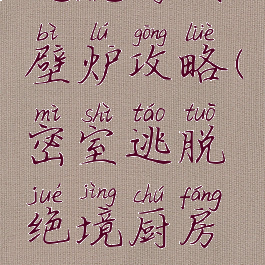 bì lú gōng lüè
壁炉攻略(
mì shì táo tuō
密室逃脱
jué jìng chú fáng
绝境厨房